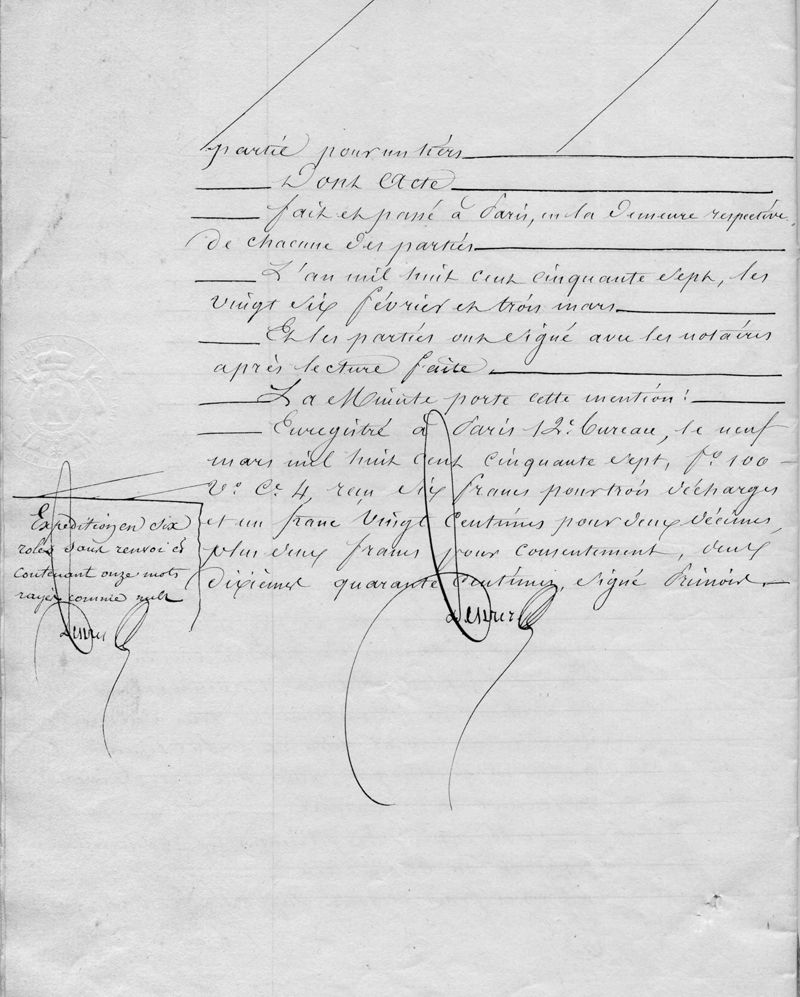 partie pour un tiers
Dont Acte
fait et passé à Paris, en la demeure respective
de chacune des parties
L'an mil huit cent cinquante sept, les
vingt six février et trois mars
Et les parties ont signé avec les notaires
après lecture faite.
La Minute porte cette mention :
Enregistré à Paris 12e. bureau, le neuf
mars mil huit cent cinquante sept, fo. 100
Vo. Ce. 4, reçu six francs pour trois décharges
et un franc vingt centimes pour deux décimes,
plus deux francs pour consentement, deux
dixièmes quarante centimes, signé
Expédition en six
roles sans renvoi et
contenant onze mots
rayés comme nuls